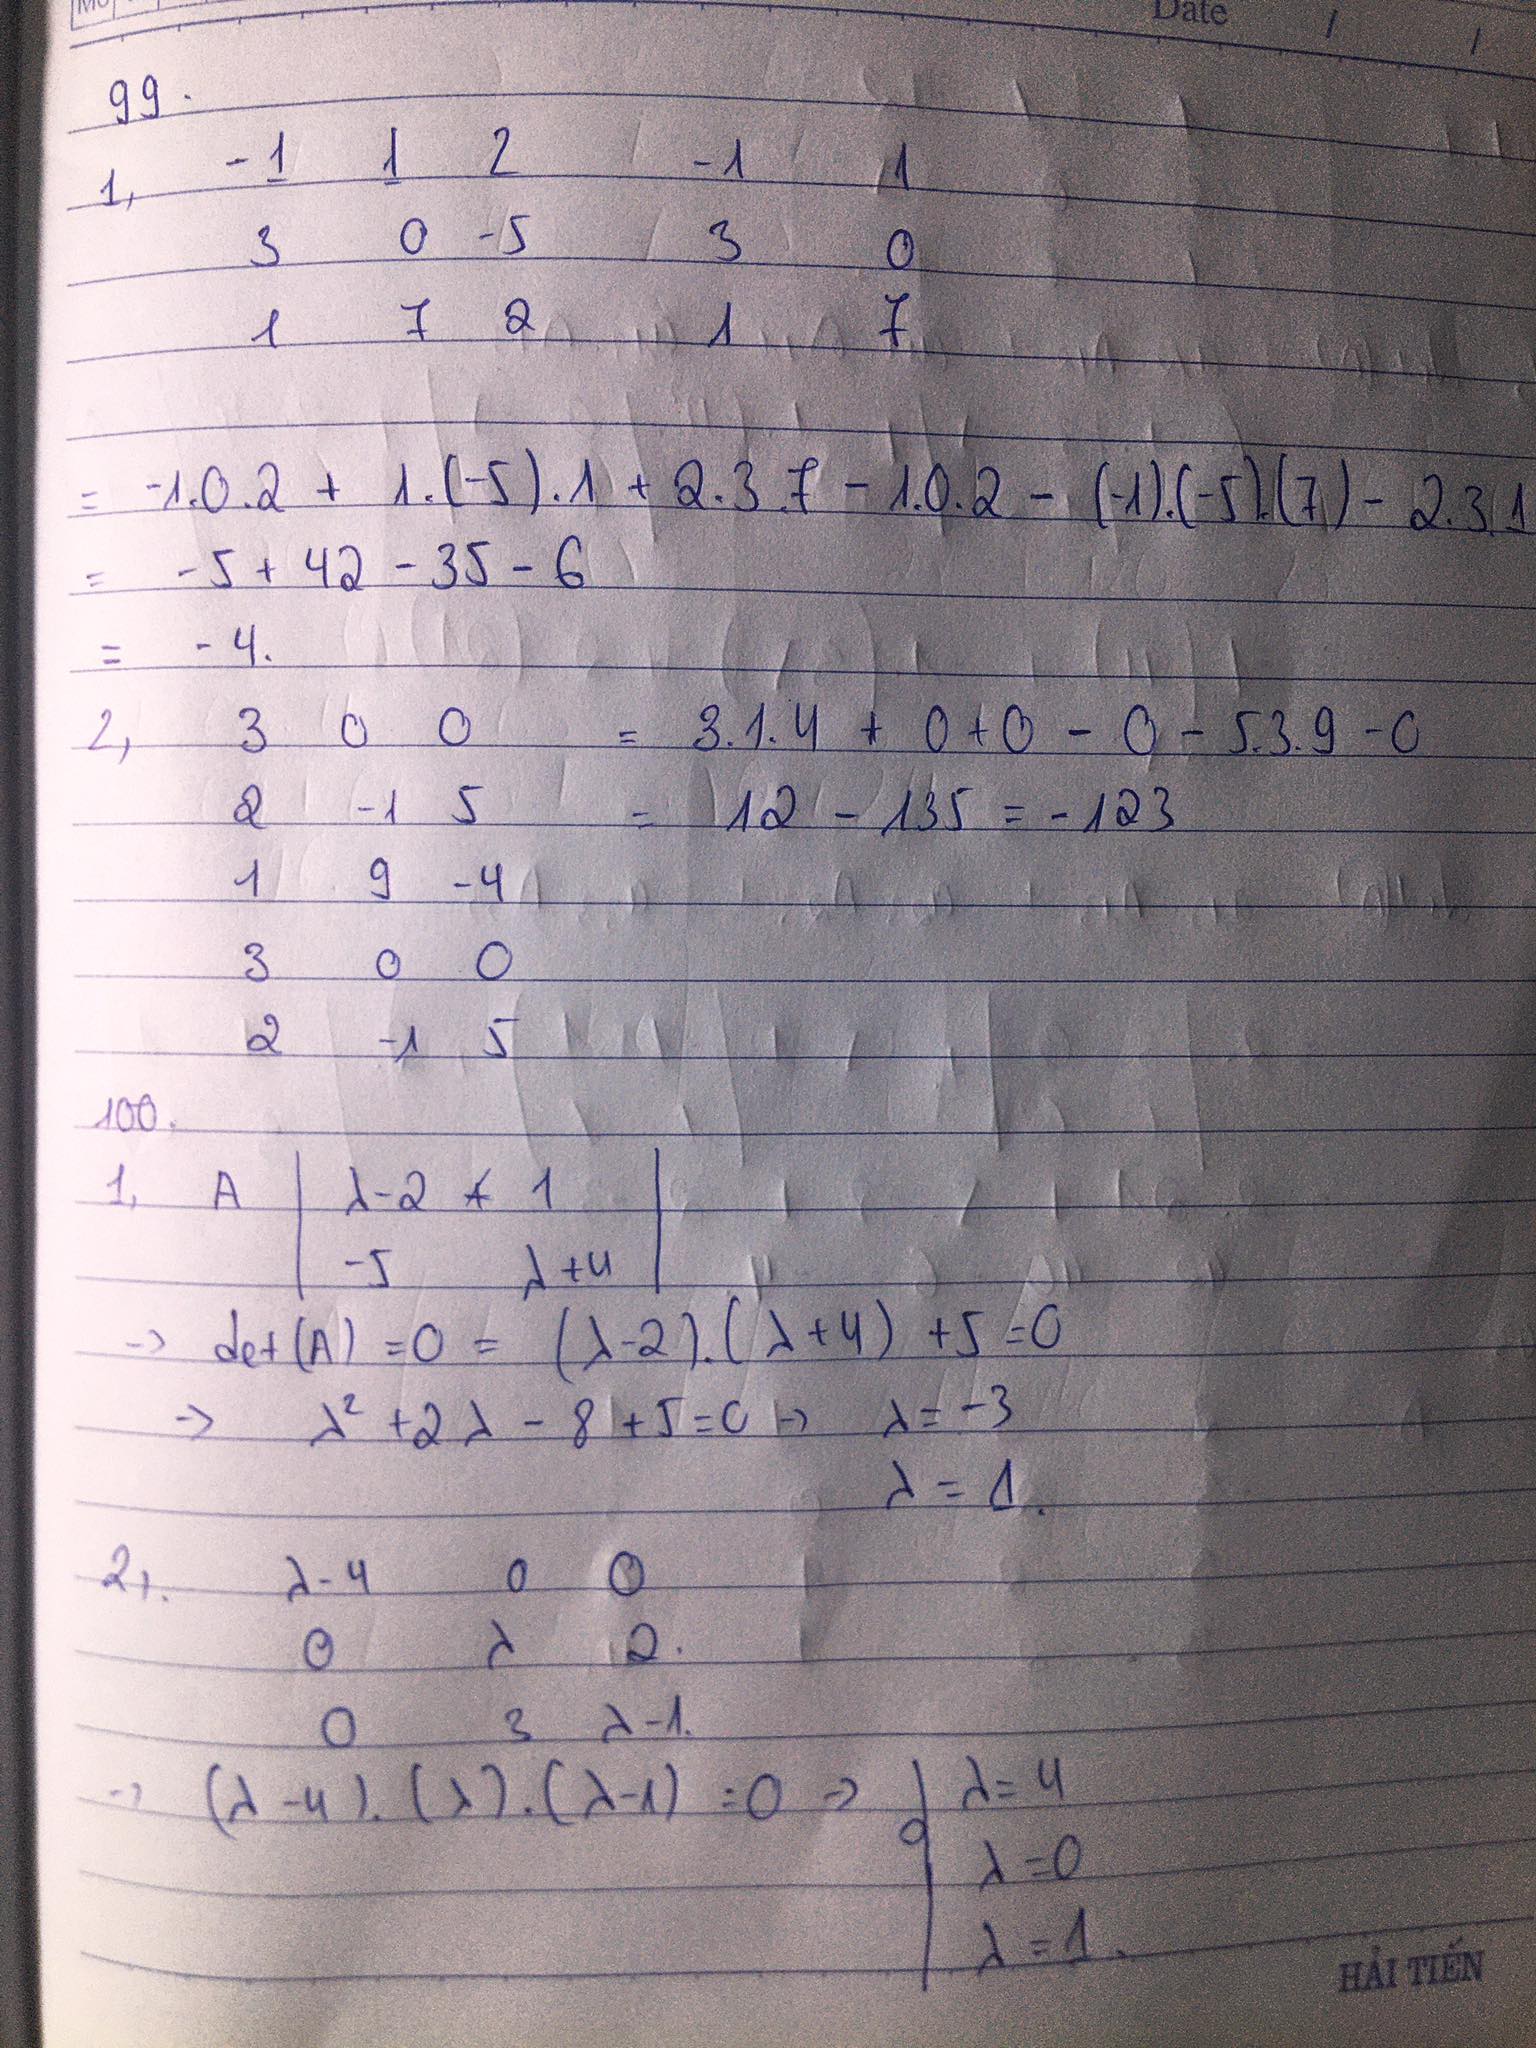 Date / /
99.
1, -1 1 2 -1 1
3 0 -5 3 0
1 7 2 1 7
= -1.0.2 + 1.(-5).1 + 2.3.7 - 1.0.2 - (-1).(-5).(7) - 2.3.1
= -5 + 42 - 35 - 6
= -4.
2, 3 0 0 = 3.1.4 + 0+0 - 0 - 5.3.9 - 0
2 -1 5 = 12 - 135 = -123
1 9 -4
3 0 0
2 -1 5
100.
1, A | λ-2 1 |
-5 λ+4
→ det(A) = 0 = (λ-2).(λ+4) + 5 = 0
→ λ² + 2λ - 8 + 5 = 0 → λ = -3
λ = 1.
2, λ-4 0 0
0 λ 2.
0 3 λ-1.
→ (λ-4).(λ).(λ-1) = 0 → λ = 4
λ = 0
λ = 1.
HẢI TIẾN